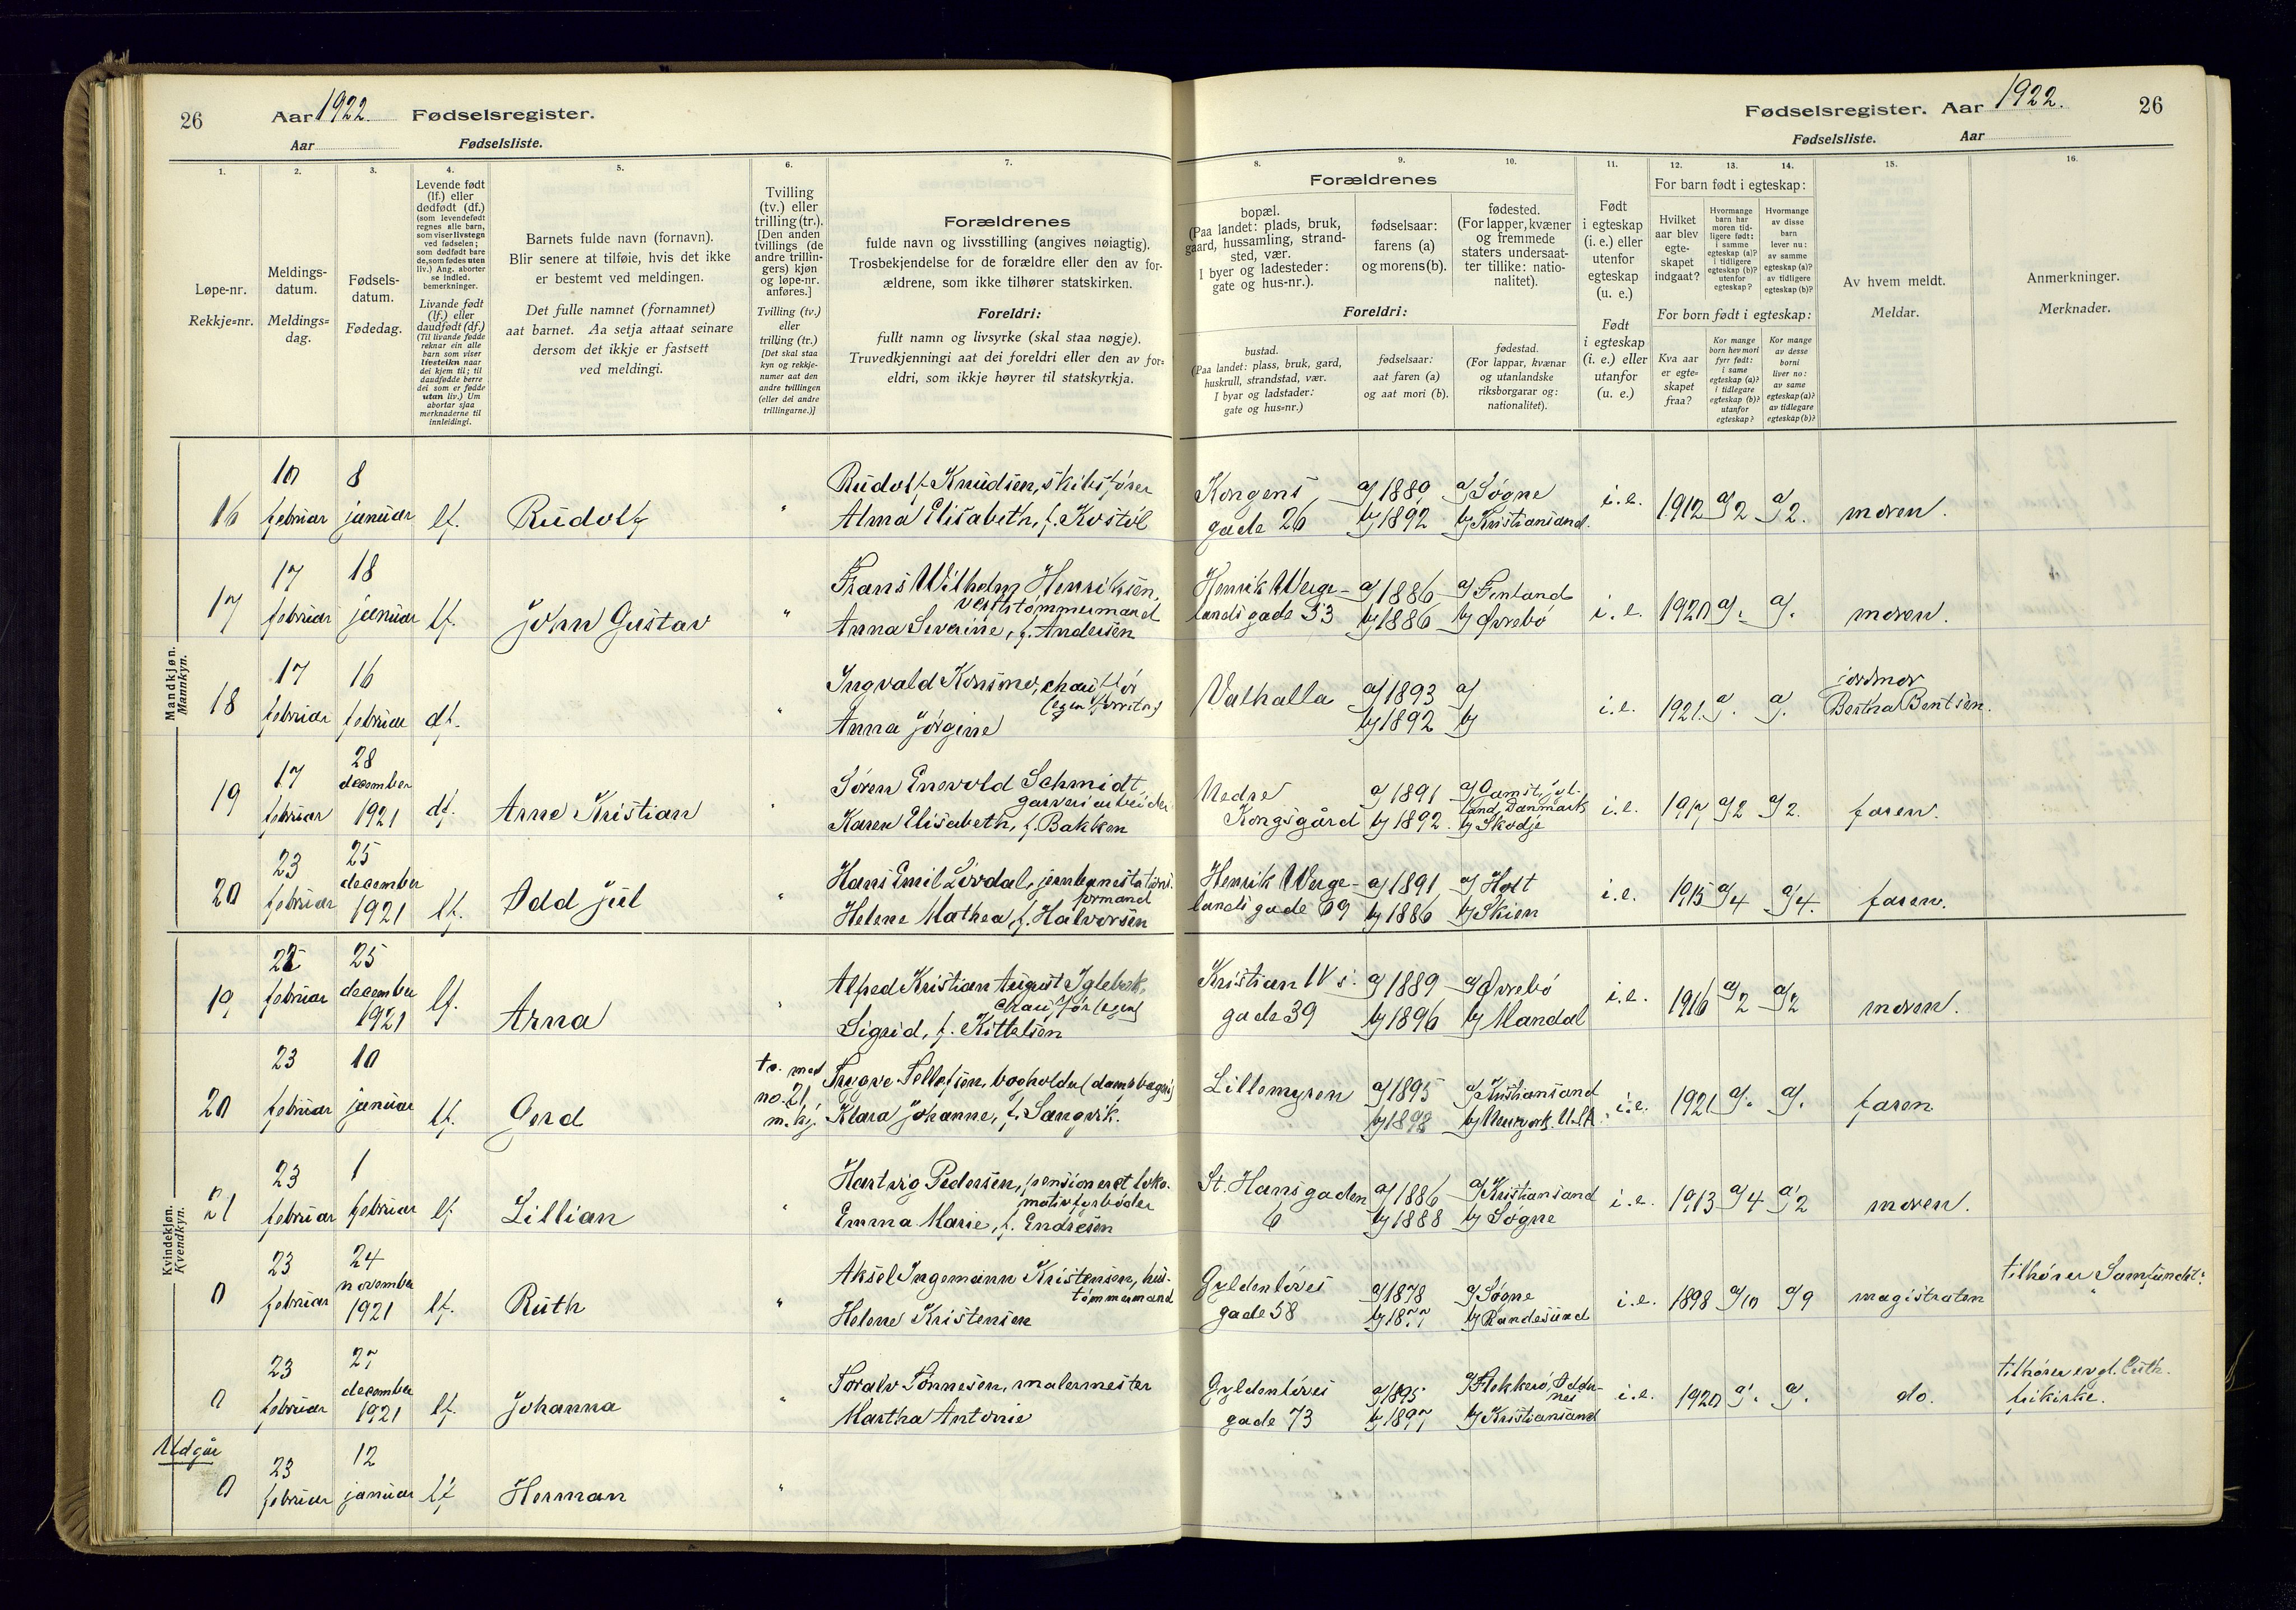 26 Aar 1922. Fødselsregister.
Aar Fødselsliste.
Fødselsregister. Aar 1922. 26
Fødselsliste. Aar
1. 2. 3. 4. 5. 6. 7.
8. 9. 10. 11. 12. 13. 14. 15. 16.
Løpe-nr.
Rekkje-nr.
Meldings-
datum.
Meldings-
dag.
Fødsels-
datum.
Fødedag.
Levende født
(lf.) eller
dødfødt (df.)
(som levendefødt
regnes alle barn,
som viser livstegn
ved fødselen;
som dødfødt bare
de, som fødes uten
liv.) Ang. aborter
se indled.
bemerkninger.
Livande født
(lf.) eller
daudfødt (df.)
(Til livande fødde
reknar ein alle
barn som viser
livsteikn naar
dei kjem til; til
daudfødde berre
dei som er fødde
utan liv.) Um
abortar sjaa
merknaderne til
innleidingi.
Barnets fulde navn (fornavn).
Blir senere at tilføie, hvis det ikke
er bestemt ved meldingen.
Det fulle namnet (fornamnet)
aat barnet. Aa setja attaat seinare
dersom det ikkje er fastsett
ved meldingi.
Tvilling
(tv.) eller
trilling (tr.).
[Den anden
tvillings (de
andre trillin-
gers) kjøn
og løpe-nr.
anføres.]
Tvilling (tv.)
eller
trilling (tr.)
[Det skal staa
kyn og rekkje-
numer aat den
andre tvillingen
(eller dei andre
trillingarne.)]
Forældrenes
fulde navn og livsstilling (angives nøiagtig).
Trosbekjendelse for de forældre eller den av for-
ældrene, som ikke tilhører statskirken.
Foreldri:
fullt namn og livsyrke (skal staa nøgje).
Truvedkjenningi aat dei foreldri eller den av for-
eldri, som ikkje høyrer til statskyrkja.
Forældrenes
bopæl.
(Paa landet: plads, bruk,
gaard, hussamling, strand-
sted, vær.
I byer og ladesteder:
gate og hus-nr.).
fødselsaar:
farens (a)
og morens (b).
fødested.
(For lapper, kvæner
og fremmede
staters undersaat-
ter tillike: natio-
nalitet).
Foreldri:
bustad.
(Paa landet: plass, bruk, gard,
huskrull, strandstad, vær.
I byar og ladstader:
gate og hus-nr.)
fødselsaar:
aat faren (a)
og aat mori (b).
fødestad.
(For lappar, kvænar
og utanlandske
riksborgarar og:
nationalitet).
Født
i egteskap
(i. e.) eller
utenfor
egteskap
(u. e.)
Født
i egteskap
(i. e.) eller
utanfor
(u. e.)
For barn født i egteskap:
Hvilket
aar blev
egte-
skapet
indgaat?
Hvormange
barn har
moren tid-
ligere født:
i samme
egteskap (a)?
i tidligere
egteskap (b)?
utenfor
egteskap?
Hvormange
av disse
barn
lever nu:
av samme
egteskap (a)?
av tidligere
egteskap (b)?
For born født i egteskap:
Kva aar
er egte-
skapet
fraa?
Kor mange
born hev mori
fyrr født:
i same
egteskap (a)?
i tidlegare
egteskap (b)?
utanfor
egteskap?
Kor mange
av desse
borni
liver no:
av same
egteskap (a)?
av tidlegare
egteskap (b)?
Av hvem meldt.
Meldar.
Anmerkninger.
Merknader.
Mandkjøn.
Mannkyn.
16 10 februar 8 januar lf. Rudolf " Rudolf Knudsen, skibsfører
Alma Elisabeth, f. Kostøl
Kongens gade 26 a/ 1889 b/ 1892 a/ Søgne b/ Kristiansand. i. e. 1912 a/ 2 a/ 2. moren.
17 17 februar 18 januar lf. John Gustav " Frans Wilhelm Henriksen,
verftstømmermand
Anna Severine, f. Andersen
Henrik Werge-
lands gade 53 a/ 1886 b/ 1886 a/ Finland b/ Øvrebø i. e. 1920 a/. a/. moren.
18 17 februar 16 februar df. " Ingvald Konsmo, chauffør
Anna Jørgine
Valhalla a/ 1893 b/ 1892 a/ b/ i. e. 1921. a/. a/. jordmor
Bertha Bentsen.
19 17 februar 28 december 1921 df. Arne Kristian " Søren Enevold Schmidt,
garveriarbeider
Karen Elisabeth, f. Bakken
Nedre
Kongsgård a/ 1891 b/ 1892. land, Danmark b/ Skodje i. e. 1917 a/ 2 a/ 2. faren.
20 23 februar 25 december 1921 lf. Odd Jul " Hans Emil Løvdal, jernbanestations-
formand
Helene Mathea, f. Halvorsen
Henrik Werge-
lands gade 69 a/ 1891 b/ 1886 a/ Holt b/ Skien i. e. 1915 a/ 4 a/ 4. faren.
Kvindekjøn.
Kvendkyn.
19 februar 25 december 1921 lf. Arna " Alfred Kristian August Iglebæk,
chauffør (egen)
Sigrid, f. Kittelsen
Kristian IV s.
gade 39 a/ 1889 b/ 1896 a/ Øvrebø b/ Mandal i. e. 1916 a/ 2 a/ 2 moren.
20 23 februar 10 januar lf. Gerd tv. med
no. 21,
m. kj. Trygve Tellefsen, bogholder (dampbageri)
Klara Johanne, f. Sangvik.
Lillemyren a/ 1895 b/ 1898 a/ Kristiansand b/ i. e. 1921 a/. a/. faren
21 23 februar 1 februar lf Lillian " Hartvig Pedersen, pensioneret loko-
motivfyrbøder
Emma Marie, f. Endresen
St. Hansgaden
6 a/ 1886 b/ 1888 a/ Kristiansand b/ Søgne i. e. 1913 a/ 4 a/ 2 moren.
0 23 februar 24 november 1921 lf. Ruth " Aksel Ingemann Kristensen, hus-
tømmermand
Helene Kristensen
Gyldenløves
gade 58 a/ 1878 b/ 1877 a/ Søgne b/ Randesund i. e. 1898 a/ 10 a/ 9 magistraten tilhører Samfundet
0 23 februar 27 december 1921 lf. Johanna " Toralv Tønnesen, malermester
Martha Antonie
Gyldenløves
gade 73 a/ 1895 b/ 1897 a/ Flekkerø, Odder-
nes b/ Kristiansand i. e. 1920 a/. a/. do. tilhører evgl. luth.
frikirke.
Udgår
0 23 februar 12 januar lf Herman "